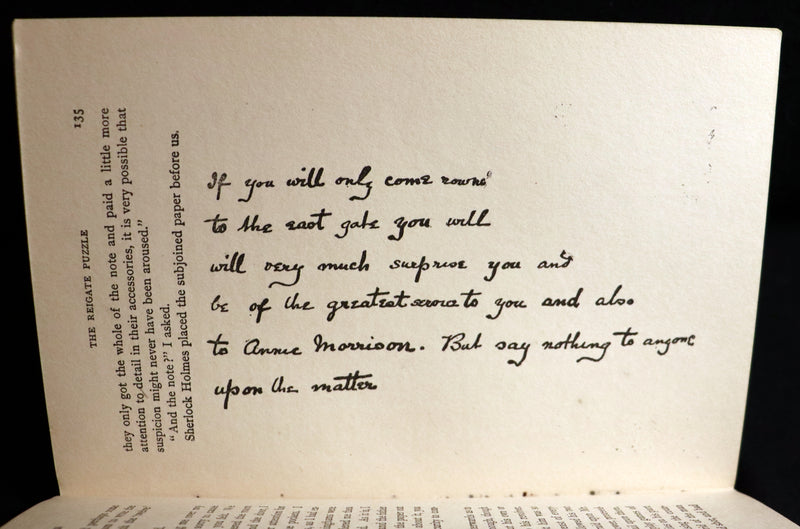 THE REIGATE PUZZLE 135
they only got the whole of the note and paid a little more
attention to detail in their accessories, it is very possible that
suspicion might never have been aroused."
"And the note?" I asked.
Sherlock Holmes placed the subjoined paper before us.
If you will only come round
to the east gate you will
will very much surprise you and
be of the greatest service to you and also
to Annie Morrison. But say nothing to anyone
upon the matter